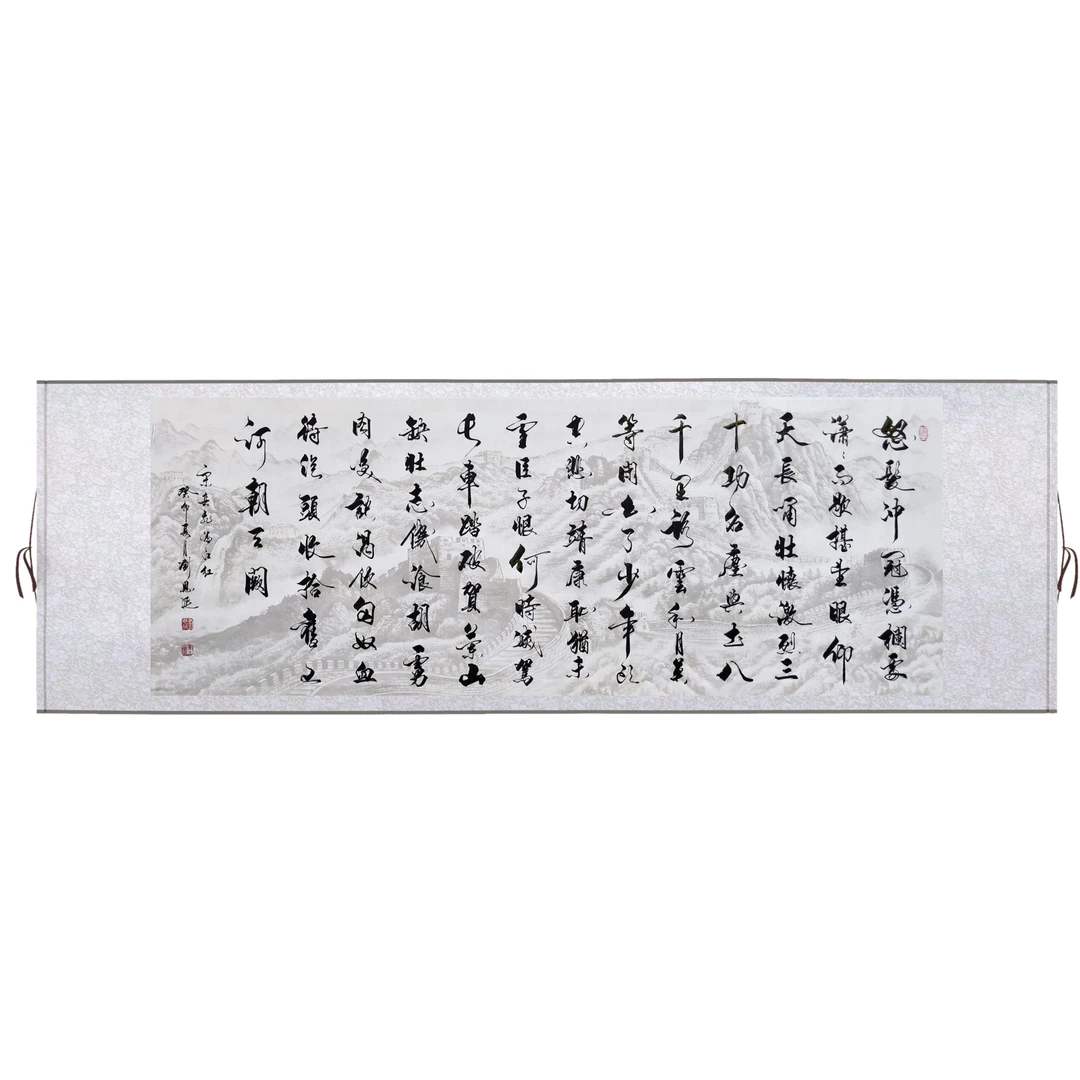 怒髮冲冠憑欄處
瀟〻雨歇擡望眼仰
天長嘯壯懷激烈三
十功名塵與土八
千里路雲和月莫
等閑白了少年頭
空悲切靖康恥猶未
雪臣子恨何時滅駕
長車踏破賀蘭山
缺壯志饑飡胡虜
肉笑談渴飲匈奴血
待從頭收拾舊山
河朝天闕
宋岳飛滿江紅
癸卯夏月劉恩